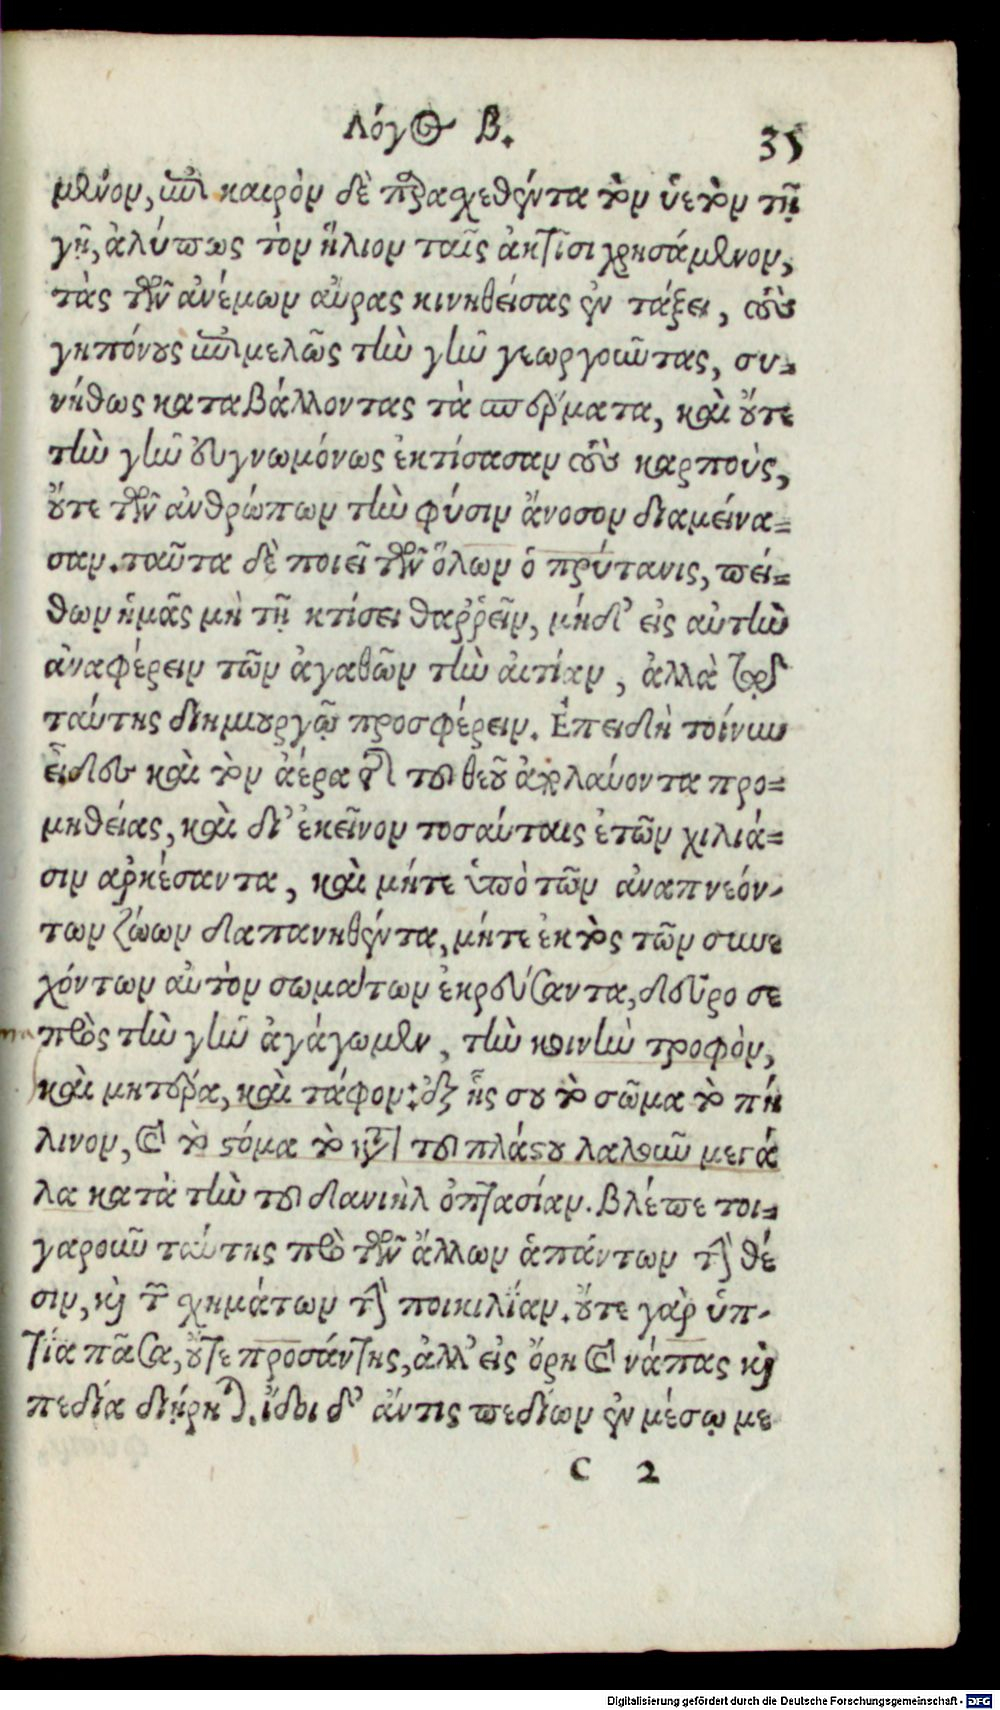 Λόγος β. 35
μενον, κατὰ καιρὸν δὲ παρασχεθέντα τὸν ὑετὸν τῇ
γῇ, ἀλύπως τὸν ἥλιον ταῖς ἀκτῖσι χρησάμενον,
τὰς τῶν ἀνέμων αὔρας κινηθείσας ἐν τάξει, τοὺς
γηπόνους ἐπιμελῶς τὴν γῆν γεωργοῦντας, συ-
νήθως καταβάλλοντας τὰ σπέρματα, καὶ οὔτε
τὴν γῆν εὐγνωμόνως ἐκτίσασαν τοὺς καρποὺς,
οὔτε τῶν ἀνθρώπων τὴν φύσιν ἄνοσον διαμείνα=
σαν. ταῦτα δὲ ποιεῖ τῶν ὅλων ὁ πρύτανις, πεί=
θων ἡμᾶς μὴ τῇ κτίσει θαῤῥεῖν, μήδ' εἰς αὐτὴν
ἀναφέρειν τῶν ἀγαθῶν τὴν αἰτίαν, ἀλλὰ τῷ
ταύτης δημιουργῷ προσφέρειν. Ἐπειδὴ τοίνυν
εἶδες καὶ τὸν ἀέρα τῆς τοῦ θεοῦ ἀπολαύοντα προ=
μηθείας, καὶ δι' ἐκεῖνον τοσαύταις ἐτῶν χιλιά=
σιν ἀρκέσαντα, καὶ μήτε ὑπὸ τῶν ἀναπνεόν-
των ζώων δαπανηθέντα, μήτε ἐκτὸς τῶν συνε
χόντων αὐτὸν σωμάτων ἐκρεύσαντα, δεῦρο σε
πρὸς τὴν γῆν ἀγάγωμεν, τὴν κοινὴν τροφὸν,
καὶ μητέρα, καὶ τάφον: ἐξ ἧς σου τὸ σῶμα τὸ πή
λινον, καὶ τὸ στόμα τὸ κατὰ τοῦ πλάστου λαλοῦν μεγά
λα κατὰ τὴν τοῦ δανιὴλ ὀπτασίαν. Βλέπε τοι-
γαροῦν ταύτης πρὸ τῶν ἄλλων ἁπάντων τὴν θέ
σιν, καὶ τῶν σχημάτων τὴν ποικιλίαν. οὔτε γὰρ ὑπ-
τία πᾶσα, οὔτε προσάντης, ἀλλ' εἰς ὄρη καὶ νάπας καὶ
πεδία διῄρηται. ἴδοι δ' ἄν τις πεδίων ἐν μέσῳ με
C 2
Digitalisierung gefördert durch die Deutsche Forschungsgemeinschaft - DFG